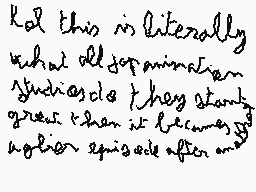 Lol this is literally
what all jap animation
studios do they start
great then it becomes
uglier episode after